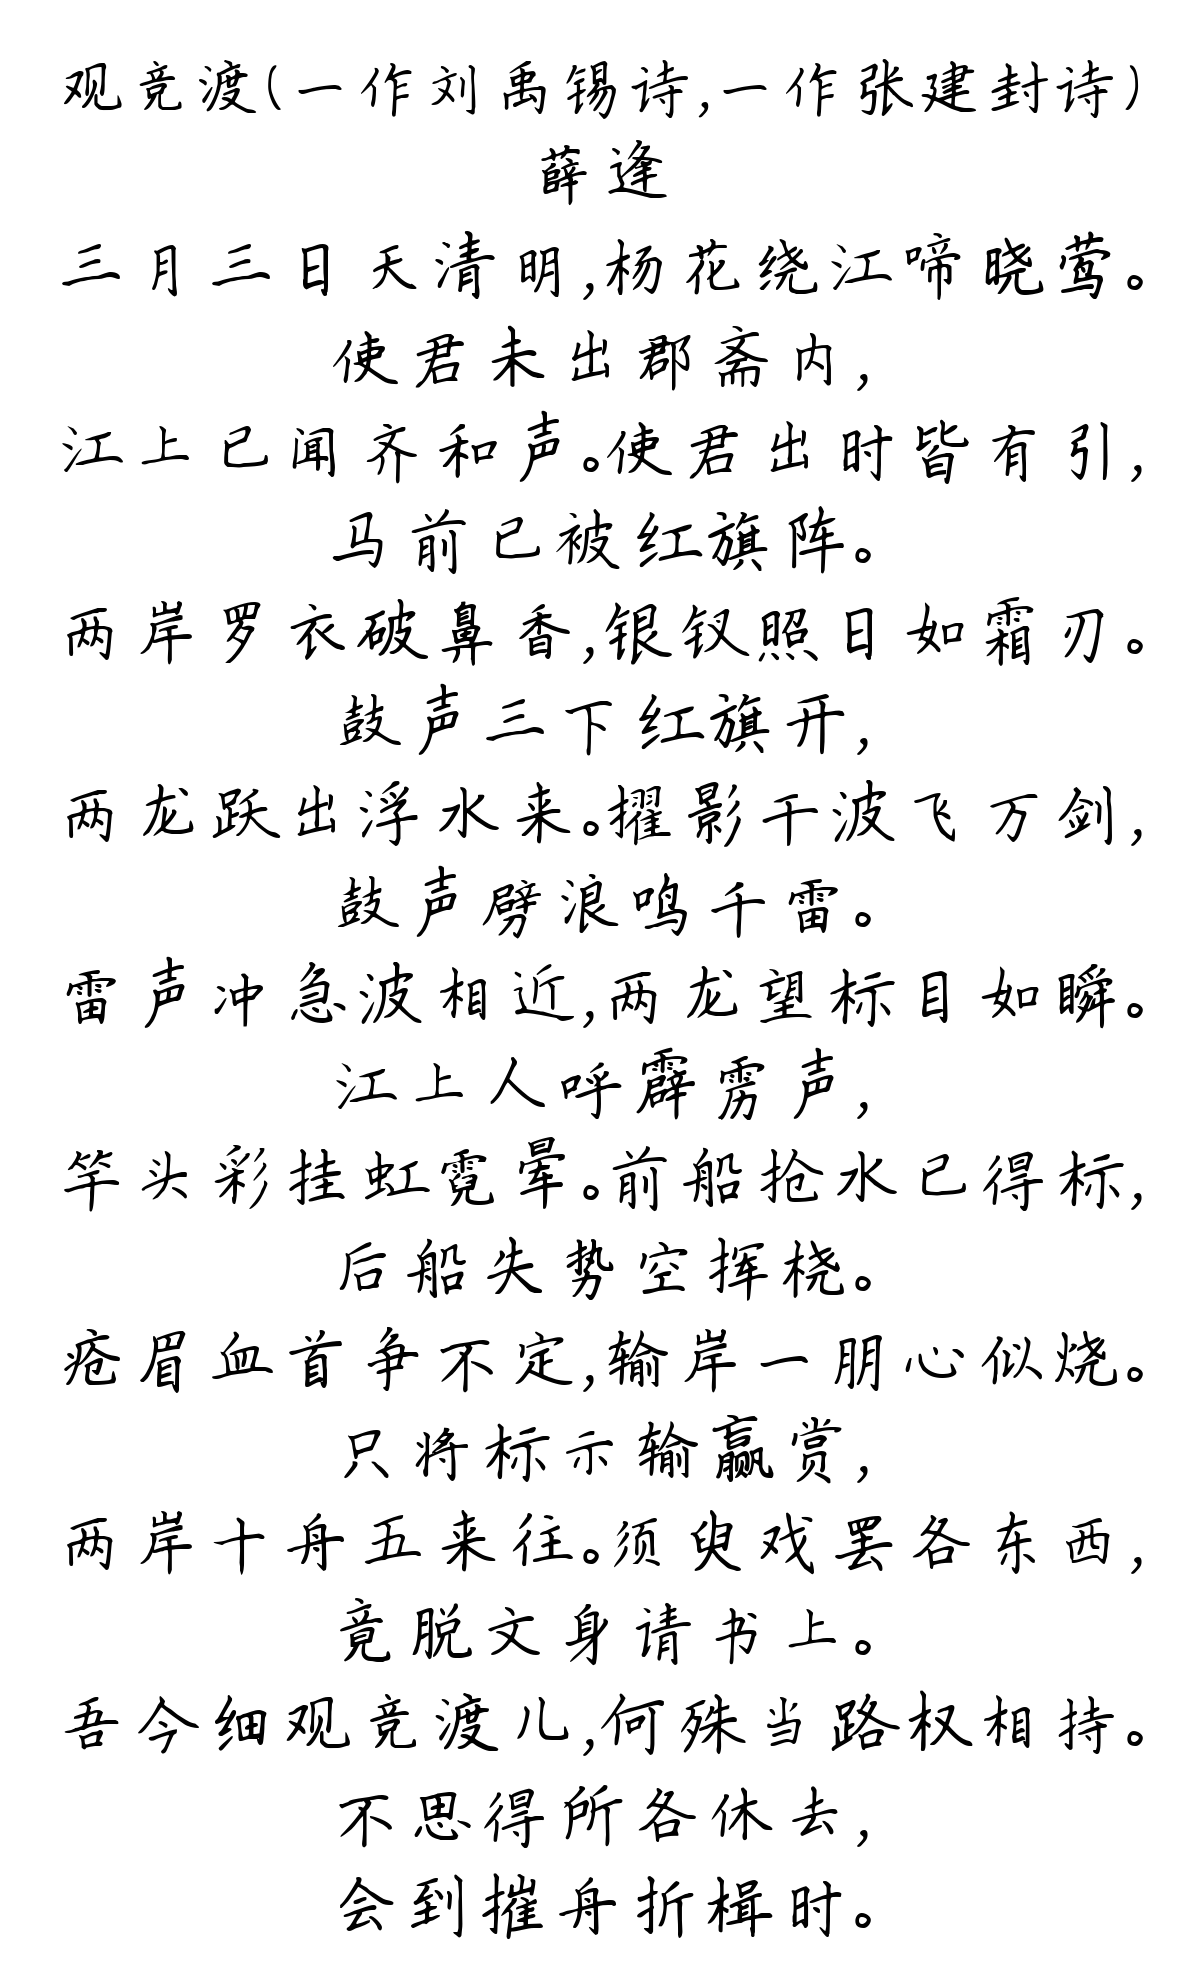 观竞渡(一作刘禹锡诗,一作张建封诗)
薛逢
三月三日天清明,杨花绕江啼晓莺。
使君未出郡斋内,
江上已闻齐和声。使君出时皆有引,
马前已被红旗阵。
两岸罗衣破鼻香,银钗照日如霜刃。
鼓声三下红旗开,
两龙跃出浮水来。擢影干波飞万剑,
鼓声劈浪鸣千雷。
雷声冲急波相近,两龙望标目如瞬。
江上人呼霹雳声,
竿头彩挂虹霓晕。前船抢水已得标,
后船失势空挥桡。
疮眉血首争不定,输岸一朋心似烧。
只将标示输赢赏,
两岸十舟五来往。须臾戏罢各东西,
竟脱文身请书上。
吾今细观竞渡儿,何殊当路权相持。
不思得所各休去,
会到摧舟折楫时。